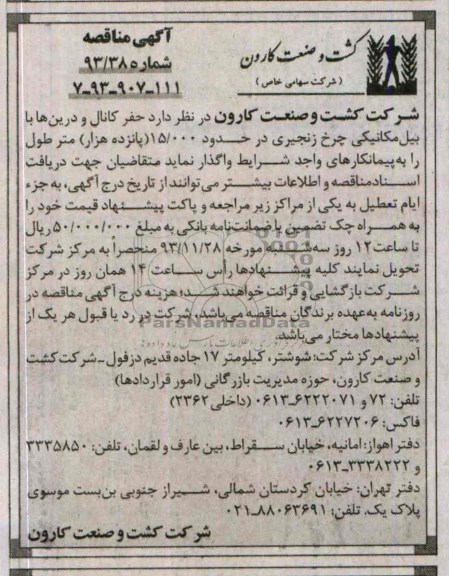 آگهی مناقصه
شماره ۹۳/۳۸
۷-۹۳-۹۰۷-۱۱۱
کشت و صنعت کارون
(شرکت سهامی خاص)
شرکت کشت و صنعت کارون در نظر دارد حفر کانال و درین‌ها با
بیل مکانیکی چرخ زنجیری در حدود ۱۵/۰۰۰(پانزده هزار) متر طول
را به پیمانکارهای واجد شرایط واگذار نماید متقاضیان جهت دریافت
اسناد مناقصه و اطلاعات بیشتر می‌توانند از تاریخ درج آگهی، به جزء
ایام تعطیل به یکی از مراکز زیر مراجعه و پاکت پیشنهاد قیمت خود را
به همراه چک تضمین یا ضمانت‌نامه بانکی به مبلغ ۵۰/۰۰۰/۰۰۰ ریال
تا ساعت ۱۲ روز سه‌شنبه مورخه ۹۳/۱۱/۲۸ منحصراً به مرکز شرکت
تحویل نمایند کلیه پیشنهادها رأس ساعت ۱۴ همان روز در مرکز
شرکت بازگشایی و قرائت خواهند شد؛ هزینه درج آگهی مناقصه در
روزنامه به‌عهده برندگان مناقصه می‌باشد، شرکت در رد یا قبول هر یک از
پیشنهادها مختار می‌باشد.
ParsNamadData
آدرس مرکز شرکت: شوشتر، کیلومتر ۱۷ جاده قدیم دزفول -شرکت کشت
و صنعت کارون، حوزه مدیریت بازرگانی (امور قراردادها)
تلفن: ۷۲ و ۶۲۲۲۰۷۱-۰۶۱۳ (داخلی ۲۳۶۲)
فاکس: ۶۲۲۷۲۰۶-۰۶۱۳
دفتر اهواز: امانیه، خیابان سقراط، بین عارف و لقمان، تلفن: ۳۳۳۵۸۵۰
و ۳۳۳۸۲۲۲-۰۶۱۳
دفتر تهران: خیابان کردستان شمالی، شیراز جنوبی بن‌بست موسوی
پلاک یک. تلفن: ۸۸۰۶۳۶۹۱-۰۲۱
شرکت کشت و صنعت کارون